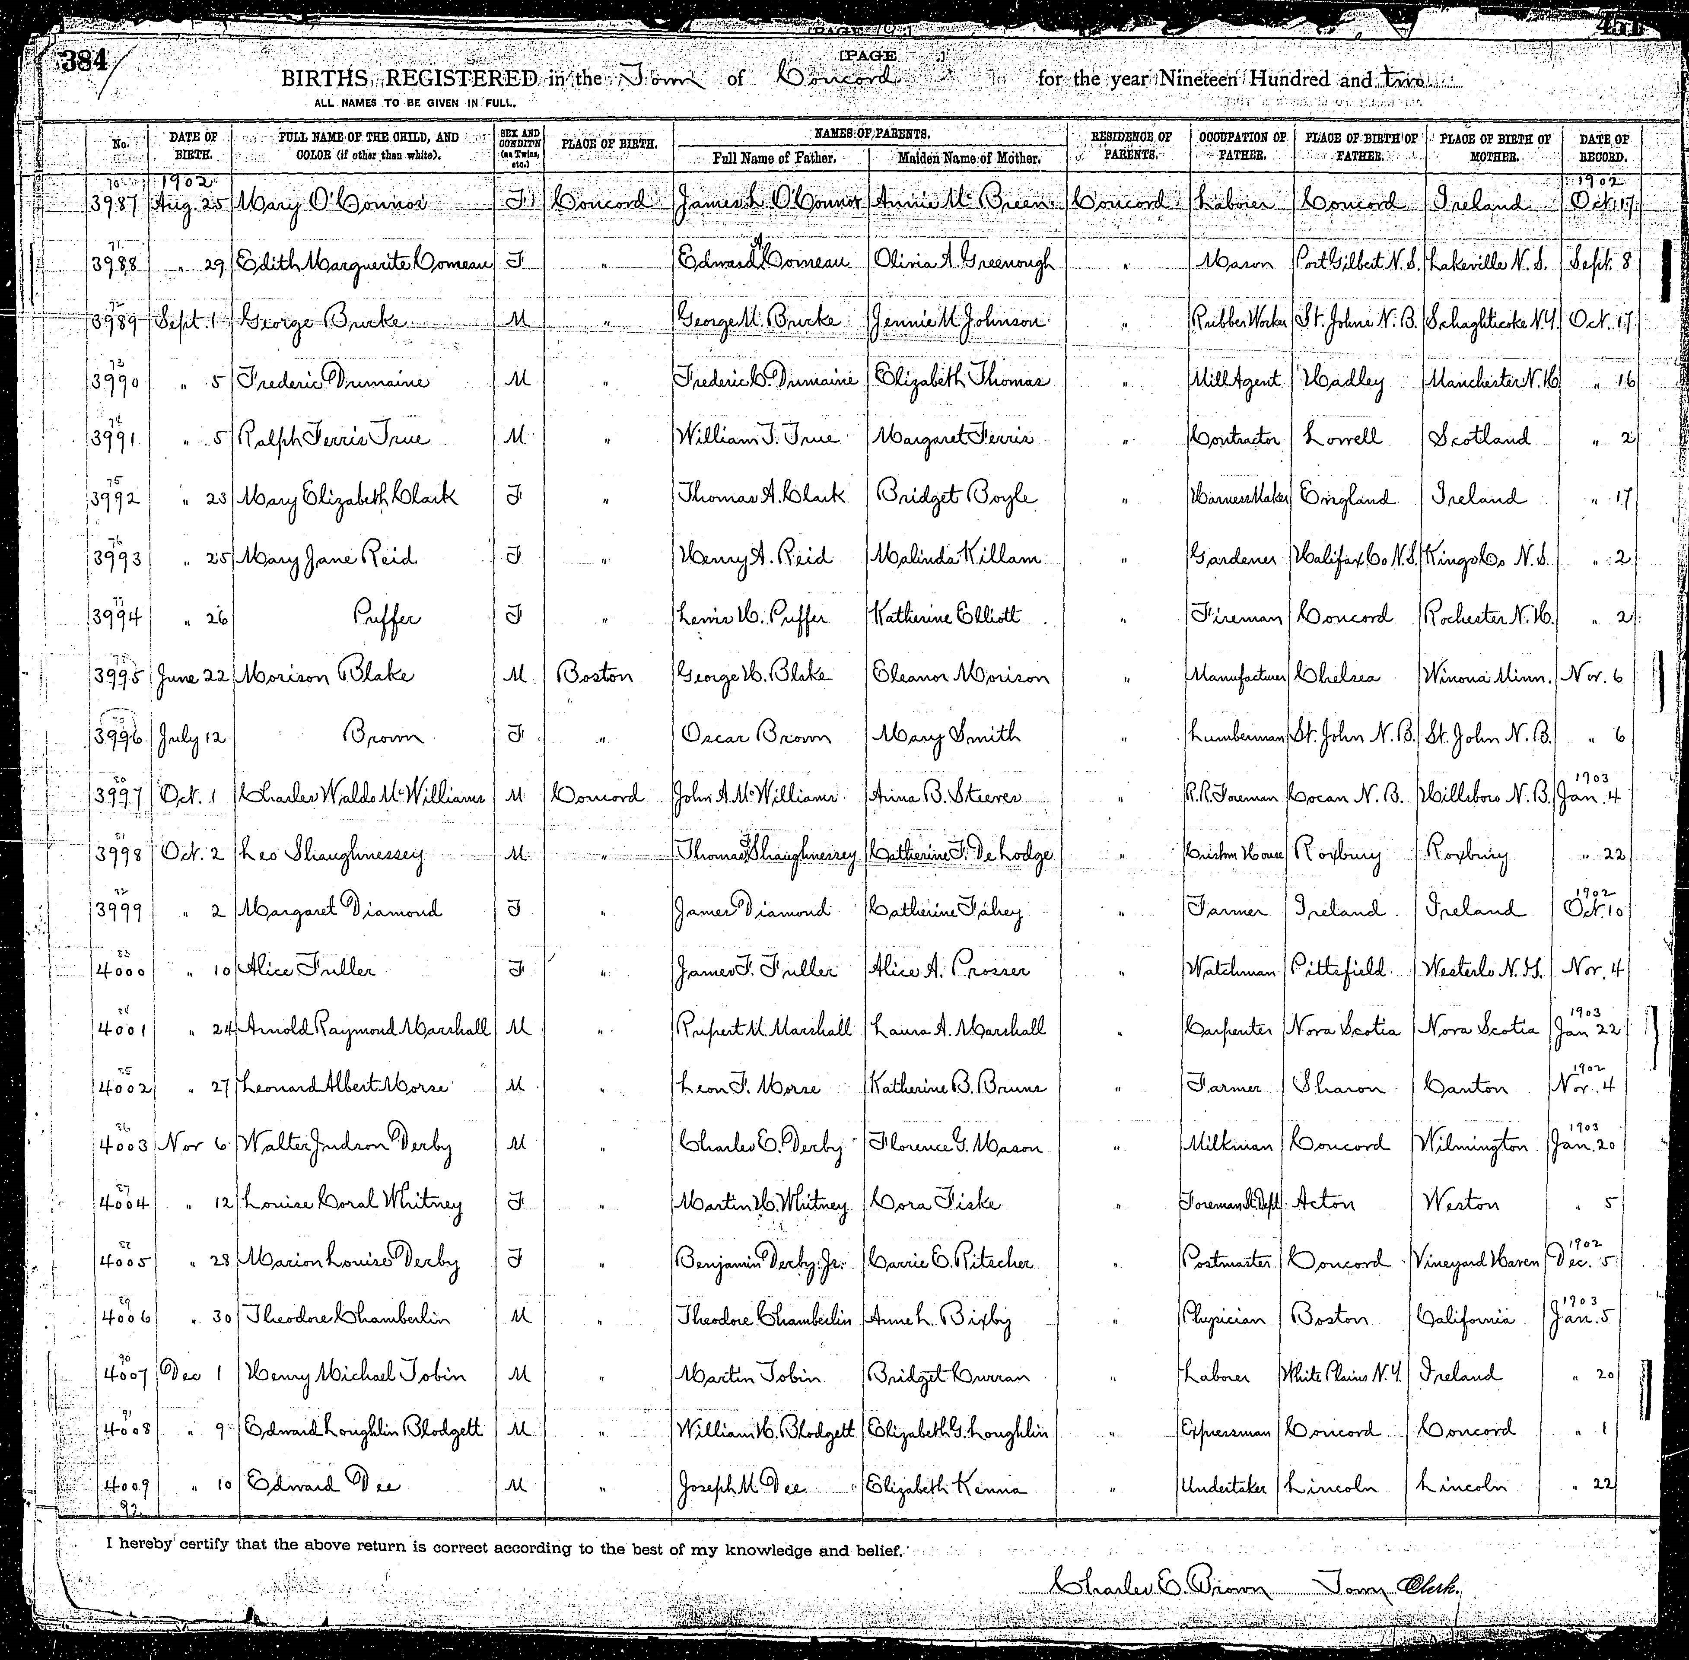 384
[PAGE ]
BIRTHS REGISTERED in the Town of Concord for the year Nineteen Hundred and two
ALL NAMES TO BE GIVEN IN FULL.
No. DATE OF BIRTH. FULL NAME OF THE CHILD, AND COLOR (if other than white). SEX AND CONDIT'N (as Twins, etc.) PLACE OF BIRTH. NAMES OF PARENTS. Full Name of Father. Maiden Name of Mother. RESIDENCE OF PARENTS. OCCUPATION OF FATHER. PLACE OF BIRTH OF FATHER. PLACE OF BIRTH OF MOTHER. DATE OF RECORD.
1902 1902
3987 Aug. 25 Mary O'Connor F Concord James L. O'Connor Annie Mc Breen Concord Laborer Concord Ireland Oct. 17
71
3988 " 29 Edith Marguerite Comeau F " Edward A Comeau Olivia A. Greenough " Mason Port Gilbert N.S. Lakeville N.S. Sept. 8
72
3989 Sept. 1 George Burke M " George M. Burke Jennie M. Johnson " Rubber Worker St. Johns N.B. Schaghticoke N.Y. Oct. 17
73
3990 " 5 Frederic Dumaine M " Frederic C. Dumaine Elizabeth Thomas " Mill Agent Hadley Manchester N.H. " 16
74
3991 " 5 Ralph Ferris True M " William T. True Margaret Ferris " Contractor Lowell Scotland " 2
75
3992 " 23 Mary Elizabeth Clark F " Thomas A. Clark Bridget Boyle " Harness Maker England Ireland " 17
76
3993 " 25 Mary Jane Reid F " Henry A. Reid Malinda Killam " Gardener Halifax Co N.S. Kings Co N.S. " 2
77
3994 " 26 Puffer F " Lewis H. Puffer Katherine Elliott " Fireman Concord Rochester N.H. " 2
3995 June 22 Morison Blake M Boston George H. Blake Eleanor Morison " Manufacturer Chelsea Winona Minn. Nov. 6
3996 July 12 Brown F " Oscar Brown Mary Smith " Lumberman St. John N.B. St. John N.B. " 6
80 1903
3997 Oct. 1 Charles Waldo McWilliams M Concord John A. McWilliams Anna B. Steeves " R.R. Foreman Cocan N.B. Hillsboro N.B. Jan. 4
81
3998 Oct. 2 Leo Shaughnessey M " Thomas F Shaughnessey Catherine F. De Lodge " Roxbury Roxbury " 22
82 1902
3999 " 2 Margaret Diamond F " James Diamond Catherine Fahey " Farmer Ireland Ireland Oct. 10
83
4000 " 10 Alice Fuller F " James F. Fuller Alice A. Prosser " Watchman Pittsfield Westerlo Nov. 4
84 1903
4001 " 24 Arnold Raymond Marshall M " Rupert M. Marshall Laura A. Marshall " Carpenter Nova Scotia Nova Scotia Jan 22
85 1902
4002 " 27 Leonard Albert Morse M " Leon F. Morse Katherine B. Bruns " Farmer Sharon Canton Nov. 4
86 1903
4003 Nov 6 Walter Judson Derby M " Charles E. Derby Florence G. Mason " Milkman Concord Wilmington Jan. 20
87
4004 " 12 Louise Coral Whitney F " Martin H. Whitney Cora Fiske " Foreman St. Dept. Acton Weston " 5
88 1902
4005 " 28 Marion Louise Derby F " Benjamin Derby Jr. Carrie E. Ritscher " Postmaster Concord Vineyard Haven Dec. 5
89 1903
4006 " 30 Theodore Chamberlin M " Theodore Chamberlin Anne L. Bixby " Physician Boston California Jan. 5
90
4007 Dec 1 Henry Michael Tobin M " Martin Tobin Bridget Curran " Laborer White Plains N.Y. Ireland " 20
91
4008 " 9 Edward Loughlin Blodgett M " William H. Blodgett Elizabeth G. Loughlin " Expressman Concord Concord " 1
4009 " 10 Edward Dee M " Joseph M. Dee Elizabeth Kenna " Undertaker Lincoln Lincoln " 22
92
I hereby certify that the above return is correct according to the best of my knowledge and belief.
Charles E. Brown Town Clerk.